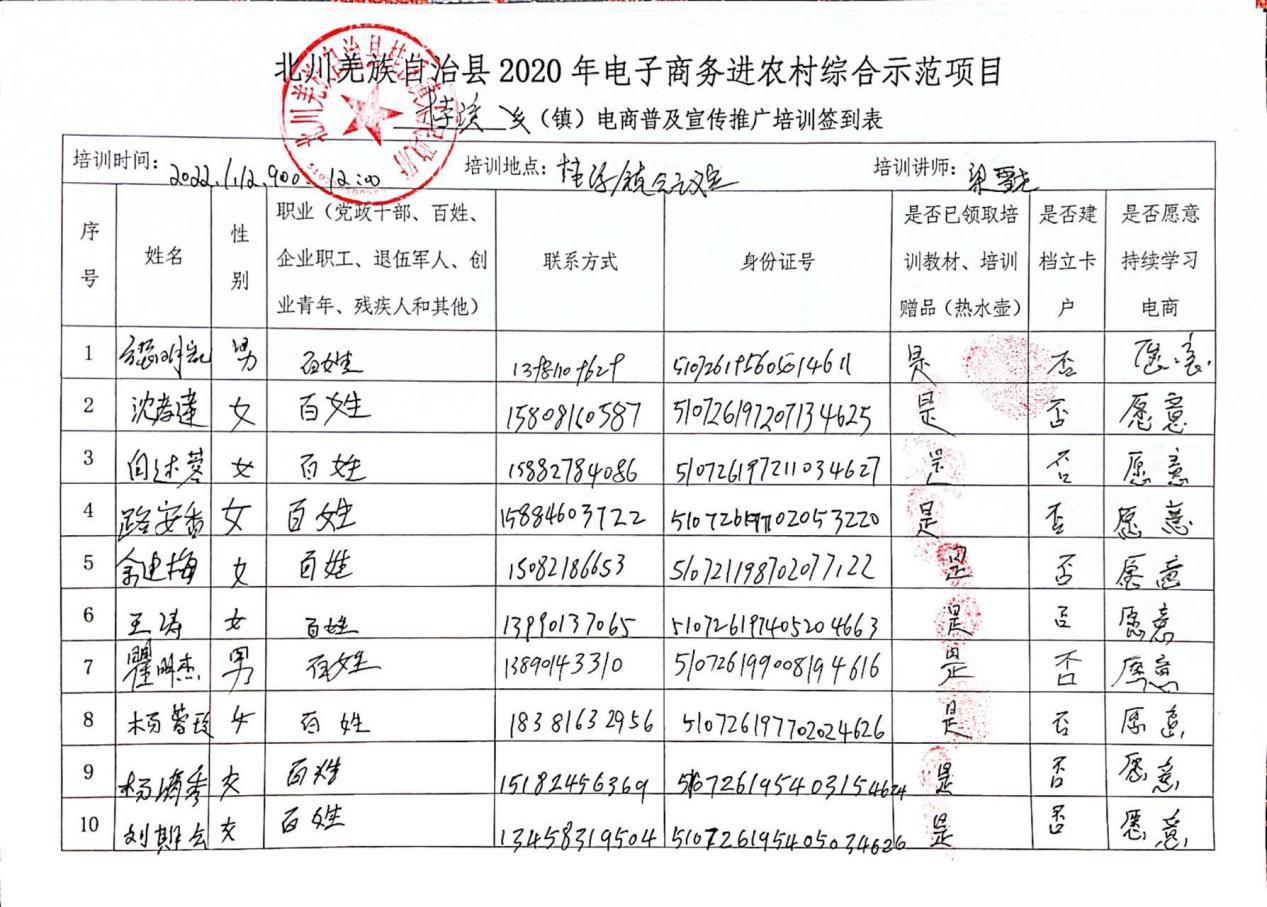 北川羌族自治县2020年电子商务进农村综合示范项目
桂溪乡（镇）电商普及宣传推广培训签到表
培训时间：2022.1.12.9:00-12:00 培训地点：桂溪镇会议室 培训讲师：梁
序号 姓名 性别 职业（党政干部、百姓、企业职工、退伍军人、创业青年、残疾人和其他） 联系方式 身份证号 是否已领取培训教材、培训赠品（热水壶） 是否建档立卡户 是否愿意持续学习电商
1 男 百姓 是 否 愿意
2 女 百姓 15808160587 510726197207134625 是 否 愿意
3 女 百姓 15882784086 510726197211034627 是 否 愿意
4 路安香 女 百姓 15884603722 是 否 愿意
5 余建梅 女 百姓 15082186653 510721198702077122 是 否 愿意
6 王涛 女 百姓 13990137065 510726197405204663 是 否 愿意
7 瞿明杰 男 百姓 13890143310 510726199008194616 是 否 愿意
8 女 百姓 18381632956 510726197702024626 是 否 愿意
9 女 百姓 15182456369 510726195403154624 是 否 愿意
10 刘期会 女 百姓 13458319504 510726195405034626 是 否 愿意